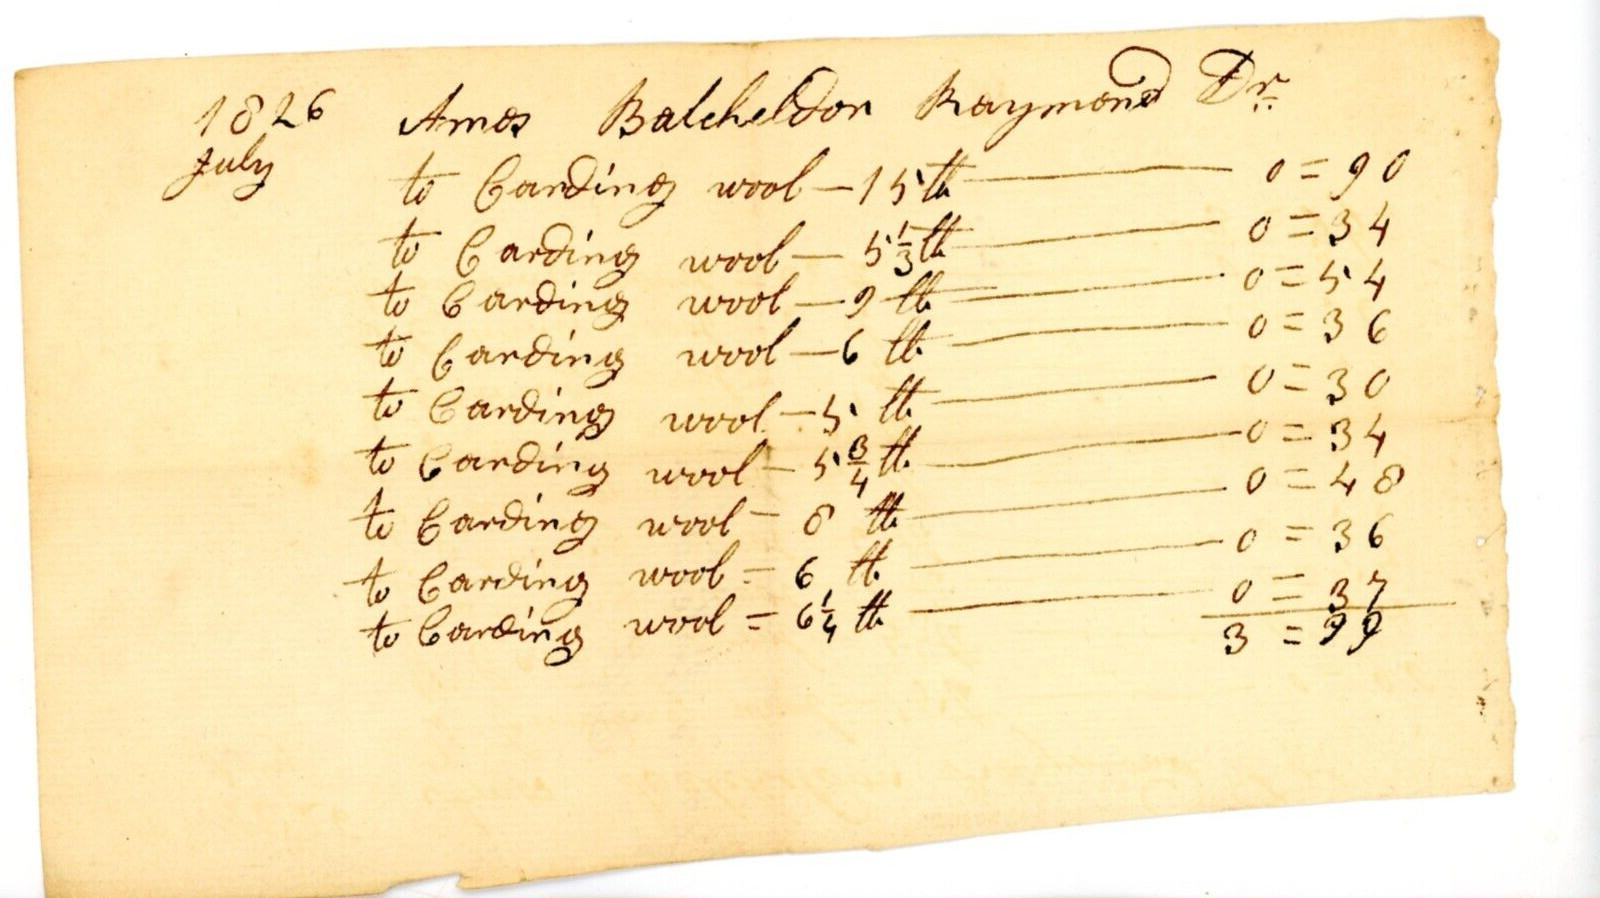 1826 Amos Balcheldor Raymond Dr.
July
to Carding wool — 15 lb — 0 = 90
to Carding wool — 5 1/3 lb — 0 = 34
to Carding wool — 9 lb — 0 = 54
to Carding wool — 6 lb — 0 = 36
to Carding wool — 5 lb — 0 = 30
to Carding wool — 5 3/4 lb — 0 = 34
to Carding wool — 8 lb — 0 = 48
to Carding wool = 6 lb — 0 = 36
to Carding wool = 6 1/4 lb — 0 = 37
3 = 99